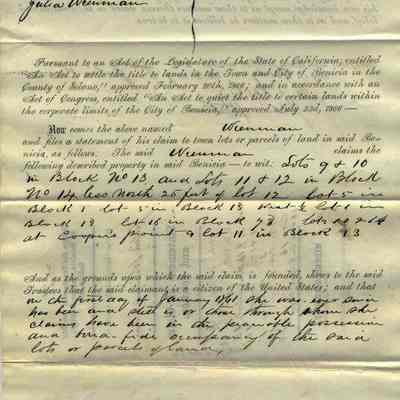 Julia Wenman
Pursuant to an Act of the Legislature of the State of California, entitled
"An Act to settle the title to lands in the Town and City of Benicia in the
County of Solano," approved February 10th, 1866; and in accordance with an
Act of Congress, entitled "An Act to quiet the title to certain lands within
the corporate limits of the City of Benicia," approved July 23d, 1866—
Now comes the above named Wenman
and files a statement of his claim to town lots or parcels of land in said Be-
nicia, as follows. The said Wenman claims the
following described property in said Benicia—to wit: Lots 9 & 10
in Block No 13 and lots 11 & 12 in Block
No 14 less North 25 feet of lot 12 lot 5 in
Block 1 lot 5 in Block 18 West ½ lot 6 in
Block 18 lot 16 in Block 73 lots
at point & lot 11 in Block 13
And as the grounds upon which the said claim is founded, shows to the said
Trustees that the said claimant is a citizen of the United States; and that
on the first day of January 1861 she was ever since
has been and still is or those through whom she
claims have been in the peaceable possession
and bona-fide occupancy of the said
lots or parcels of land,